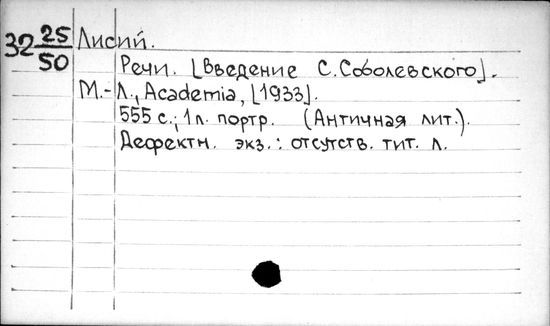 32 25/50
Лисий.
Речи. [Введение С. Соболевского].
М.-Л., Academia, [1933].
555 с.; 1 л. портр. (Античная лит.).
Дефектн. экз.: отсутств. тит. л.